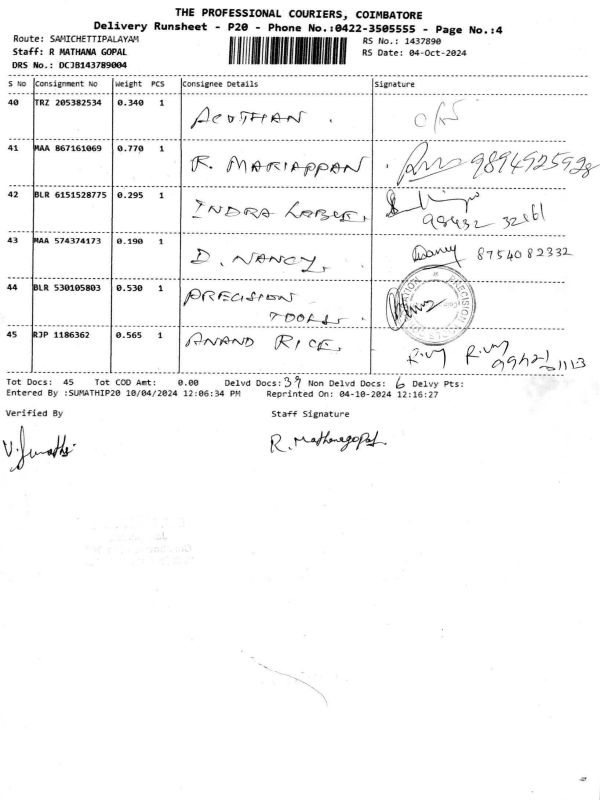 THE PROFESSIONAL COURIERS, COIMBATORE
Delivery Runsheet - P20 - Phone No.:0422-3505555 - Page No.:4
Route: SAMICHETTIPALAYAM
RS No.: 1437890
Staff: R MATHANA GOPAL
RS Date: 04-Oct-2024
DRS No.: DCJB143789004
S No Consignment No Weight PCS Consignee Details Signature
40 TRZ 205382534 0.340 1 ACUTHAN .
41 MAA 867161069 0.770 1 R. MARIAPPAN . 9894925928
42 BLR 6151528775 0.295 1 INDRA LABEL. 98432 32161
43 MAA 574374173 0.190 1 D. NANCY. Nancy 8754082332
44 BLR 530105803 0.530 1 PRECISION TOOLS. PRECISION
45 RJP 1186362 0.565 1 ANAND RICE.
Tot Docs: 45 Tot COD Amt: 0.00 Delvd Docs: 39 Non Delvd Docs: 6 Delvy Pts:
Entered By :SUMATHIP20 10/04/2024 12:06:34 PM Reprinted On: 04-10-2024 12:16:27
Verified By Staff Signature
V. Sumathi R. Mathanagopal.